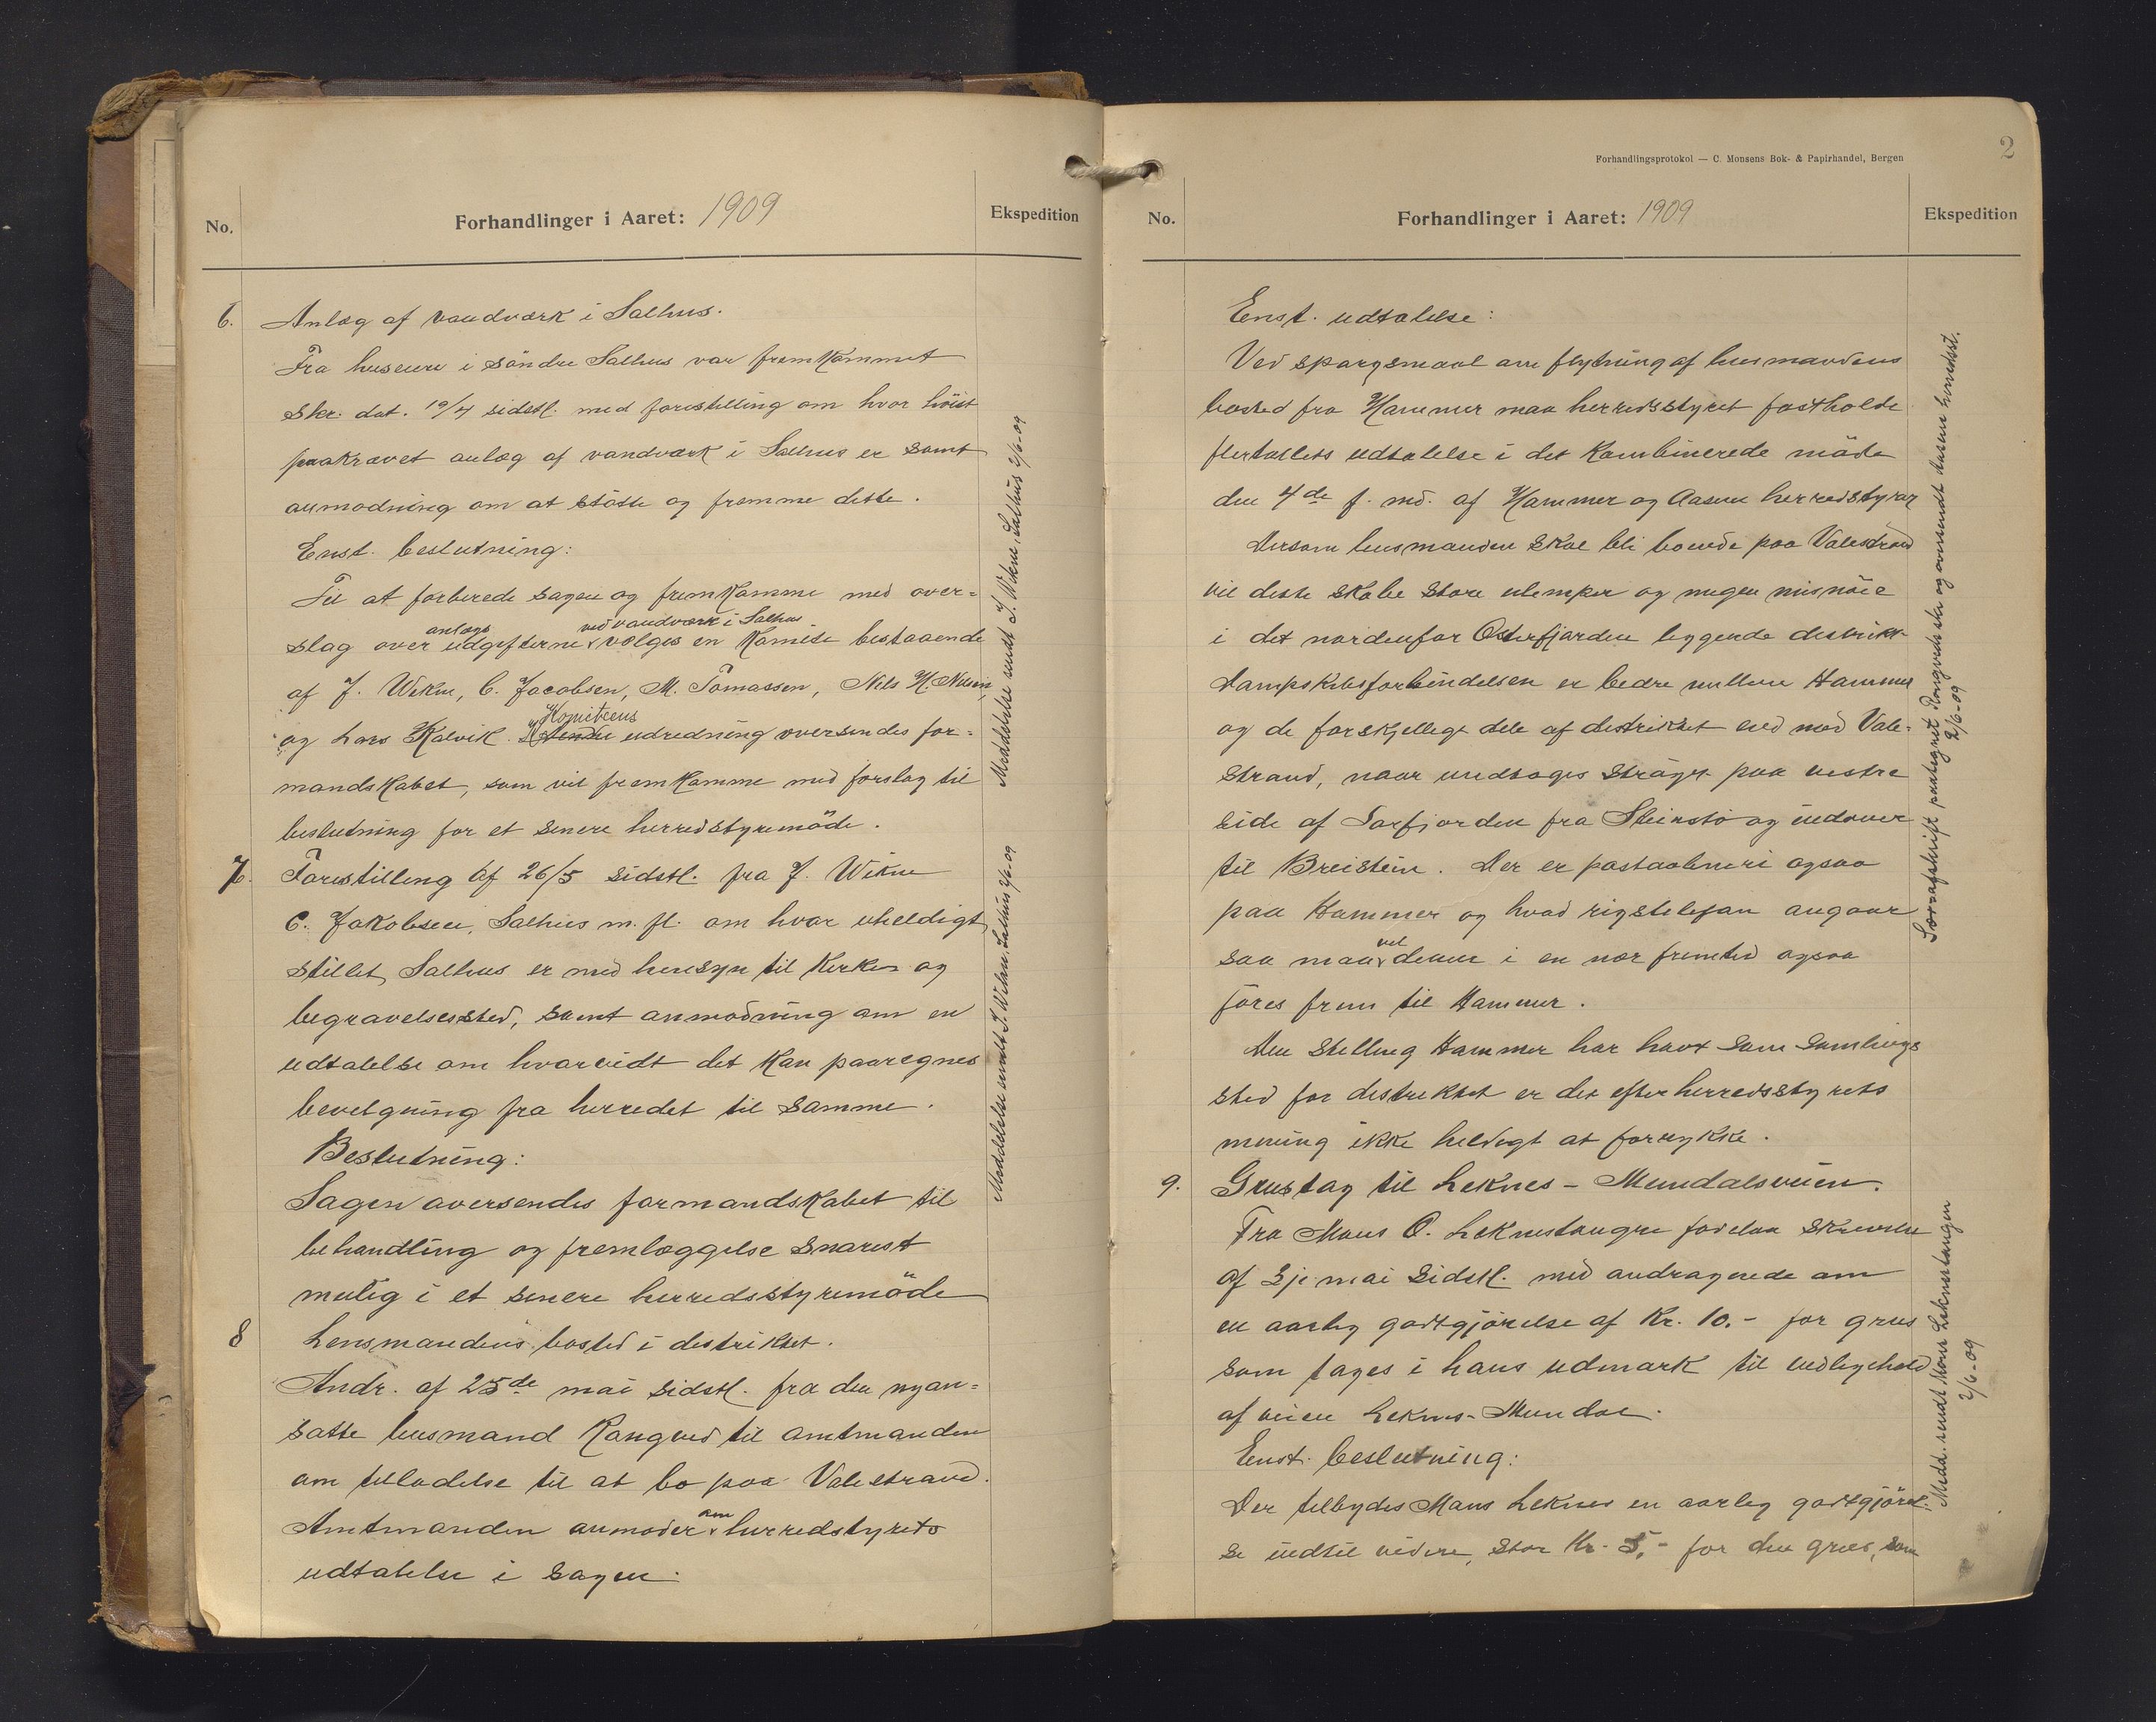 No.
Forhandlinger i Aaret: 1909
Ekspedition
6. Anlæg af vandværk i Salhus.
Fra huseiere i söndre Salhus var fremkommet
skr. dat. 19/4 sidstl. med forestilling om hvor höist
paakrævet anlæg af vandværk i Salhus er samt
anmodning om at stötte og fremme dette.
Enst. beslutning:
Til at forberede sagen og fremkomme med over=
slag over anlægs udgifterne ved vandværk i Salhus vælges en Komite bestaaende
af J. Wikne, C. Jacobsen, M. Tomassen, Nils H.
og Lars Kalvik. Komiteens udredning oversendes for=
mandskabet, som vil fremkomme med forslag til
beslutning for et senere herredstyremöde.
Meddelelse sendt J. Wikne, Salhus 2/6-09
7. Forestilling af 26/5 sidstl. fra J. Wikne
C. Jakobsen, Salhus m. fl. om hvor uheldigt
stillet Salhus er med hensyn til Kirke og
begravelsessted, samt anmodning om en
udtalelse om hvorvidt det kan paaregnes
bevilgning fra herredet til samme.
Beslutning:
Sagen oversendes formandskabet til
behandling og fremlæggelse snarest
mulig i et senere herredsstyremöde
Meddelelse sendt J. Wikne, Salhus 2/6-09
8 Lensmandens bosted i distriktet.
Andr. af 25de mai sidstl. fra den nyan=
satte lensmand Rongved til amtmanden
om tilladelse til at bo paa Valestrand.
Amtmanden anmoder om herredstyrets
udtalelse i sagen.
Forhandlingsprotokol — C. Monsens Bok- & Papirhandel, Bergen
2
No.
Forhandlinger i Aaret: 1909
Ekspedition
Enst. udtalelse:
Ved spörgsmaal om flytning af lensmandens
bosted fra Hammer maa herredsstyret fastholde
flertallets udtalelse i det kombinerede möde
den 4de f. md. af Hammer og Aasene herredstyrer
Dersom lensmanden skal bli boende paa Valestrand
vil dette skabe store ulemper og megen misnöie
i det nordenfor Osterfjorden liggende distrikt
Dampskibsforbindelsen er bedre mellem Hammer
og de forskjellige dele af distriktet end med Vale=
strand, naar undtages ströget paa vestre
side af Sörfjorden fra Steinstö og indover
til Breistein. Der er postaabneri ogsaa
paa Hammer og hvad rigstelefon angaar
saa maa vel denne i en nær fremtid ogsaa
föres frem til Hammer.
Den stilling Hammer har havt som samlings
sted for distriktet er det efter herredsstyrets
mening ikke heldigt at forrykke.
Særafskrift paategnet Rongveds skr og oversendt Aasene herredsst.
2/6-09
9. Grustag til Leknes - Mundalsveien.
Fra Mons O. Leknestangen forelaa skrivelse
af 3je mai sidstl. med andragende om
en aarlig godtgjörelse af Kr. 10.- for grus
som tages i hans udmark til vedligehold
af veien Leknes-Mundal.
Enst. beslutning:
Der tilbydes Mons Leknes en aarlig godtgjörel=
se indtil videre, stor Kr. 5.- for den grus, som
Medd. sendt Mons Leknestangen
2/6-09